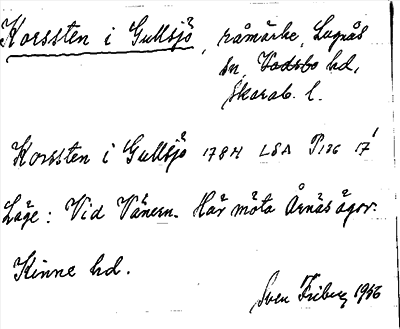 Korssten i Gullsjö, råmärke, Lugnås
sn, Vadsbo hd,
Skarab. l.
Korssten i Gullsjö 1784 LSA P126 17'
Läge: Vid Vänern. Här möta Årnäs ägor.
Kinne hd.
Sven Friberg 1956